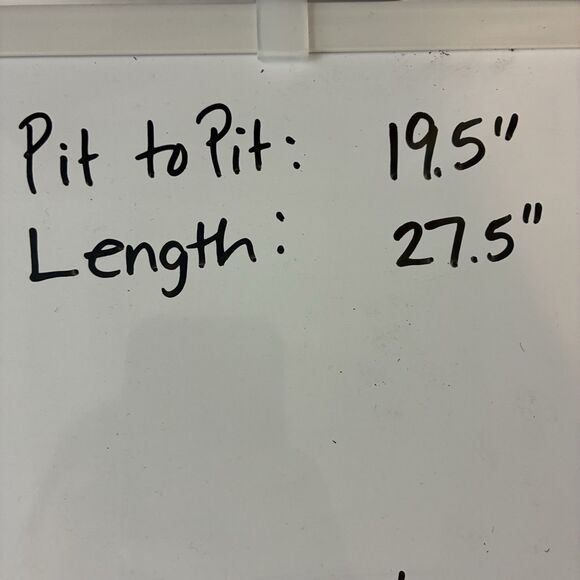 Pit to Pit: 19.5"
Length: 27.5"